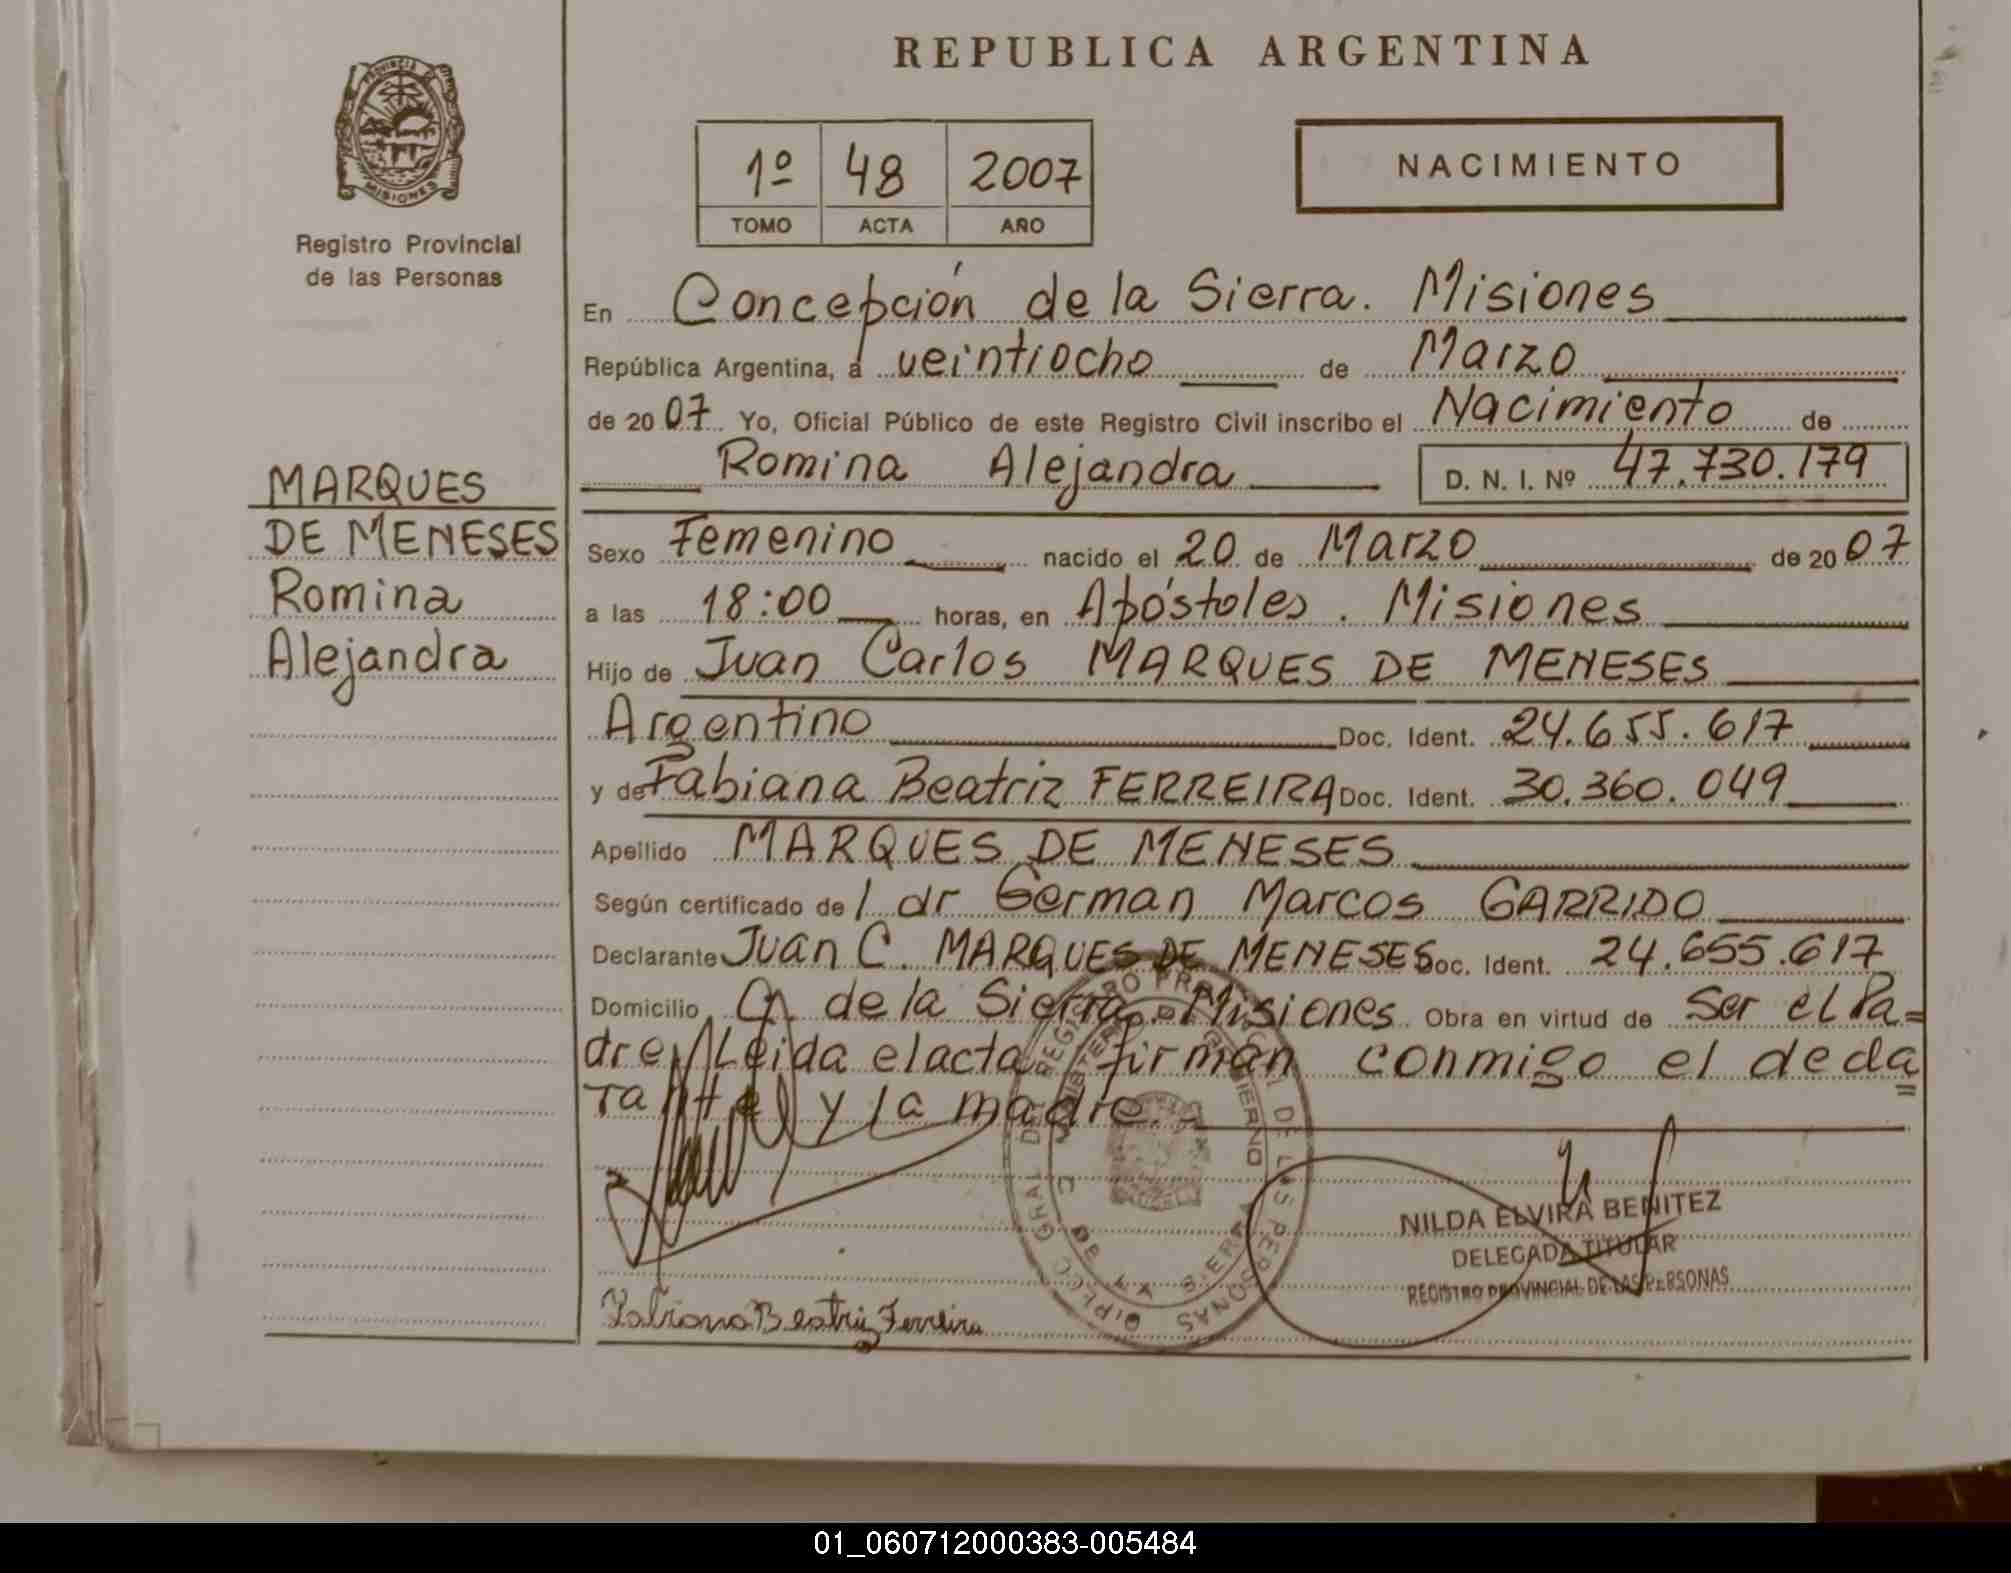 REPUBLICA ARGENTINA
PROVINCIA DE
MISIONES
Registro Provincial
de las Personas
1º 48 2007
TOMO ACTA AÑO
NACIMIENTO
En Concepción de la Sierra. Misiones
República Argentina, a veintiocho de Marzo
de 2007 Yo, Oficial Público de este Registro Civil inscribo el Nacimiento de
Romina Alejandra D. N. I. Nº 47.730.179
MARQUES
DE MENESES
Romina
Alejandra
Sexo Femenino nacido el 20 de Marzo de 2007
a las 18:00 horas, en Apóstoles. Misiones
Hijo de Juan Carlos MARQUES DE MENESES
Argentino Doc. Ident. 24.655.617
y de Fabiana Beatriz FERREIRA Doc. Ident. 30.360.049
Apellido MARQUES DE MENESES
Según certificado del dr German Marcos GARRIDO
Declarante Juan C. MARQUES DE MENESES Doc. Ident. 24.655.617
Domicilio C. de la Sierra. Misiones Obra en virtud de Ser el Pa=
dre, Leida el acta firman conmigo el decla
=
rante y la madre.
NILDA ELVIRA BENITEZ
DELEGADA TITULAR
REGISTRO PROVINCIAL DE LAS PERSONAS
Fabiana Beatriz Ferreira
01_060712000383-005484